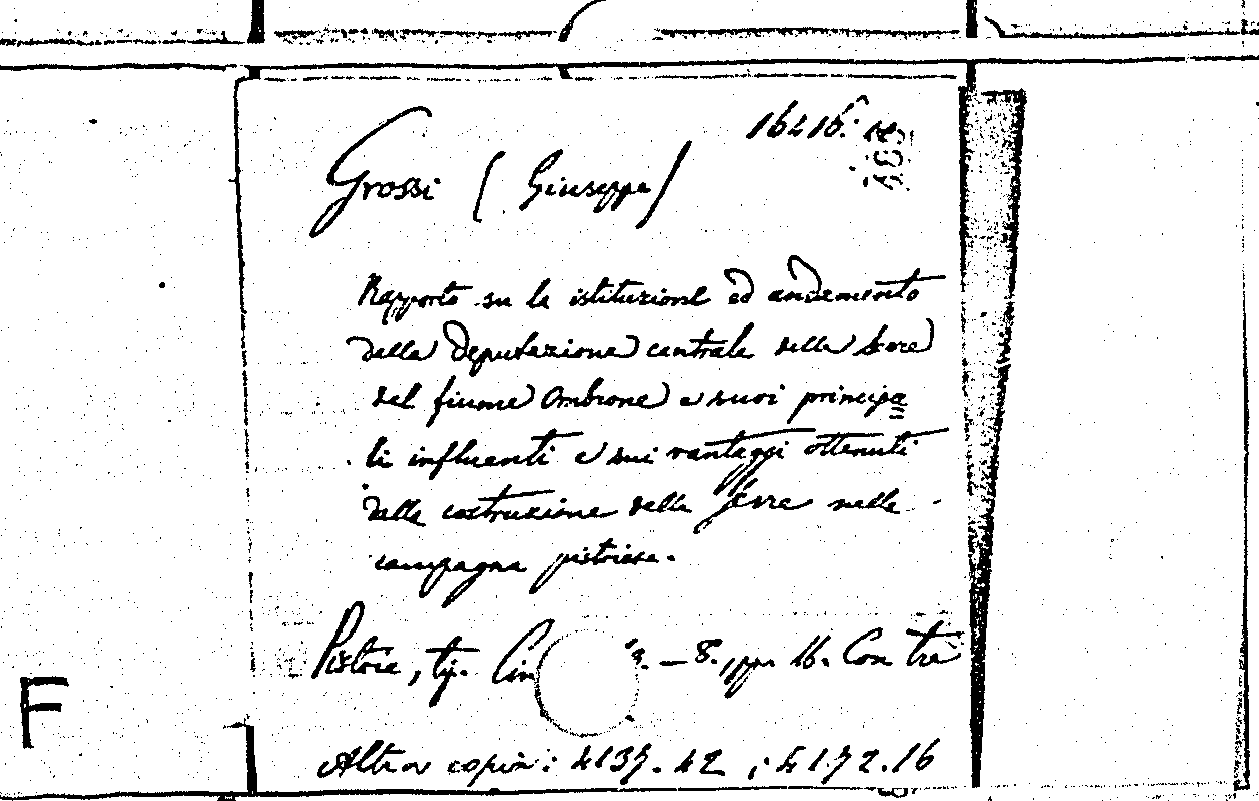 Grossi (Giuseppe)
Rapporto su la istituzione ed andamento
della Deputazione centrale delle Serre
del fiume Ombrone e suoi principa
li influenti e sui vantaggi ottenuti
dalla costruzione delle Serre nella
campagna pistoiese.
Pistoia, tip. Cin — 8. pp. 16. Con tre
Altra copia: 4137.42 ; 4172.16
F